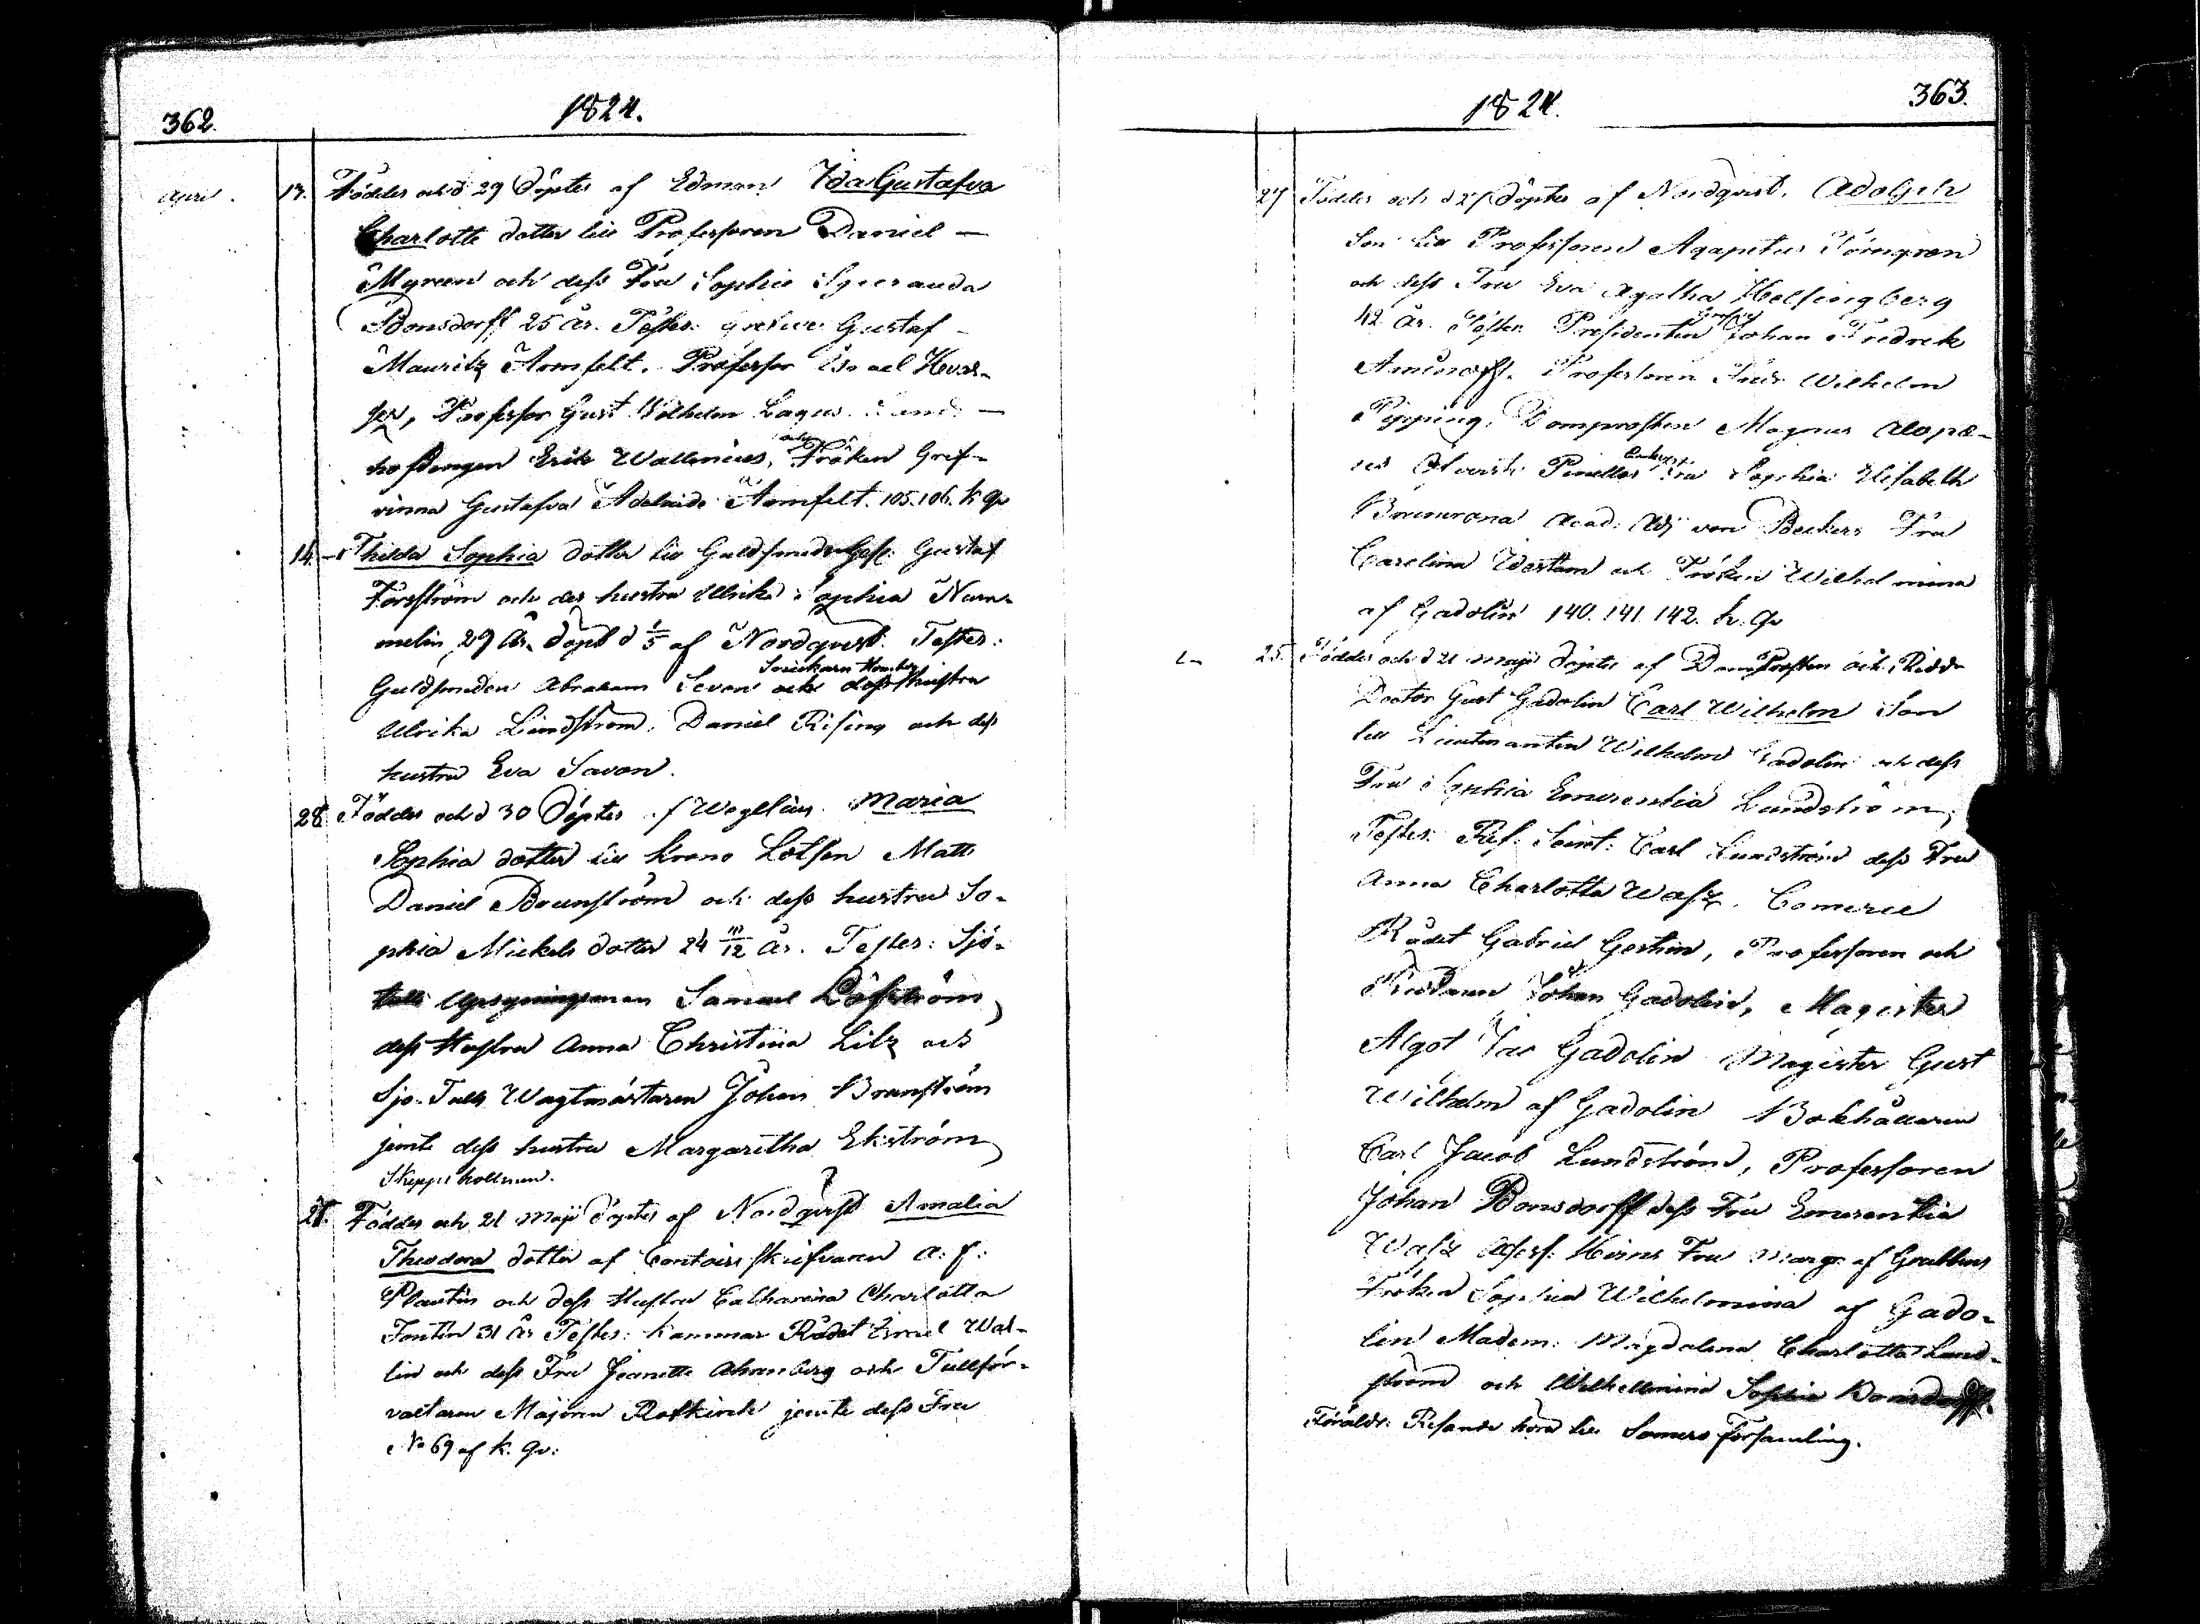 362.
1824.
April. 13. Föddes och d 29 Döptes af Edman Ida Gustafva
Charlotte dotter till Professoren Daniel —
Myreen och dess Fru Sophie Speranda
Bonsdorff 25 år. Testes: Grefwe Gustaf
Mauritz Armfelt. Professor Israel Hwas-
ser, Professor Gust Wilhelm Lagus. Lands —
hofdingen Erik Wallenius, och Fröken Gref-
vinna Gustafva Adelaide Armfelt. 105. 106. k qv
14. Thilda Sophia dotter till Guldsmeds Gess. Gustaf
Forsström och des hustru Ulrika Sophia Num-
melin, 29 år. döpt d 1/5 af Nordqvist. Testes:
Guldsmeden Abraham Levon och dess Hustru
Ulrika Lindström, Daniel Rising och dess
hustru Eva Savon.
28. Föddes och d 30 Döptes af Weglius Maria
Sophia dotter till Krono Lotsen Matts
Daniel Brunström och dess hustru So-
phia Mickels dotter 24 11/12 år. Testes: Sjö-
tulls Upsyningsman Samuel Löfström,
dess Hustru Anna Christina Lilz och
Sjö-Tulls Wagtmästaren Johan Brunström
jemte dess hustru Margaretha Ekström,
Skeppsholmen.
28. Föddes och 21 Maji Döptes af Nordqvist Amalia
Theodora dotter af Contoirs skrifvaren A: f:
Plantin och dess Hustru Catharina Charlotta
Fontin 31 år Testes: Kammar Rådet Israel Wal-
lin och dess Fru Jeanette Ahrenberg och Tullför-
valtaren Majoren Rotkirch jemte dess Fru
No 69 af k. qv:
1824.
363.
27 Föddes och d 27 Döptes af Nordqvist. Adolph
Son till Professoren Agapetus Törngren
och dess Fru Eva Agatha Helsingberg
42 år. Testes. Presidenten Grefve Johan Fredrek
Aminoff. Professoren Fredr Wilhelm
Pipping, Domprosten Magnus Alopæ-
us Öfverste Pinellos Enkefru Fru Sophia Elisabeth
Acad. Adj von Beckers Fru
Carolina och Fröken Wilhelmina
af Gadolin 140. 141. 142. k. qv
25. Föddes och d 21 Maji döptes af DomProsten och Ridd
Doctor Gust Gadolin Carl Wilhelm Son
till Lieutenanten Wilhelm Gadolin och dess
Fru Sophia Emerentia Lundström;
Testes: Carl Lundström dess Fru
Anna Charlotta Wasz. Comerce
Rådet Gabriel Gestrin, Professoren och
Riddaren Johan Gadolin, Magister
Algot Jac Gadolin Magister Gust
Wilhelm af Gadolin Bokhållaren
Carl Jacob Lundström, Professoren
Johan Bonsdorff dess Fru Emerentia
Wasz Assess. Hirns Fru Marg: af Grubbens
Fröken Sophia Wilhelmina af Gado-
lin Madem: Magdalena Charlotta Lund-
ström och Wilhelmina Sophia Bonsdorff.
Föräldr: Resande höra till Somero församling.